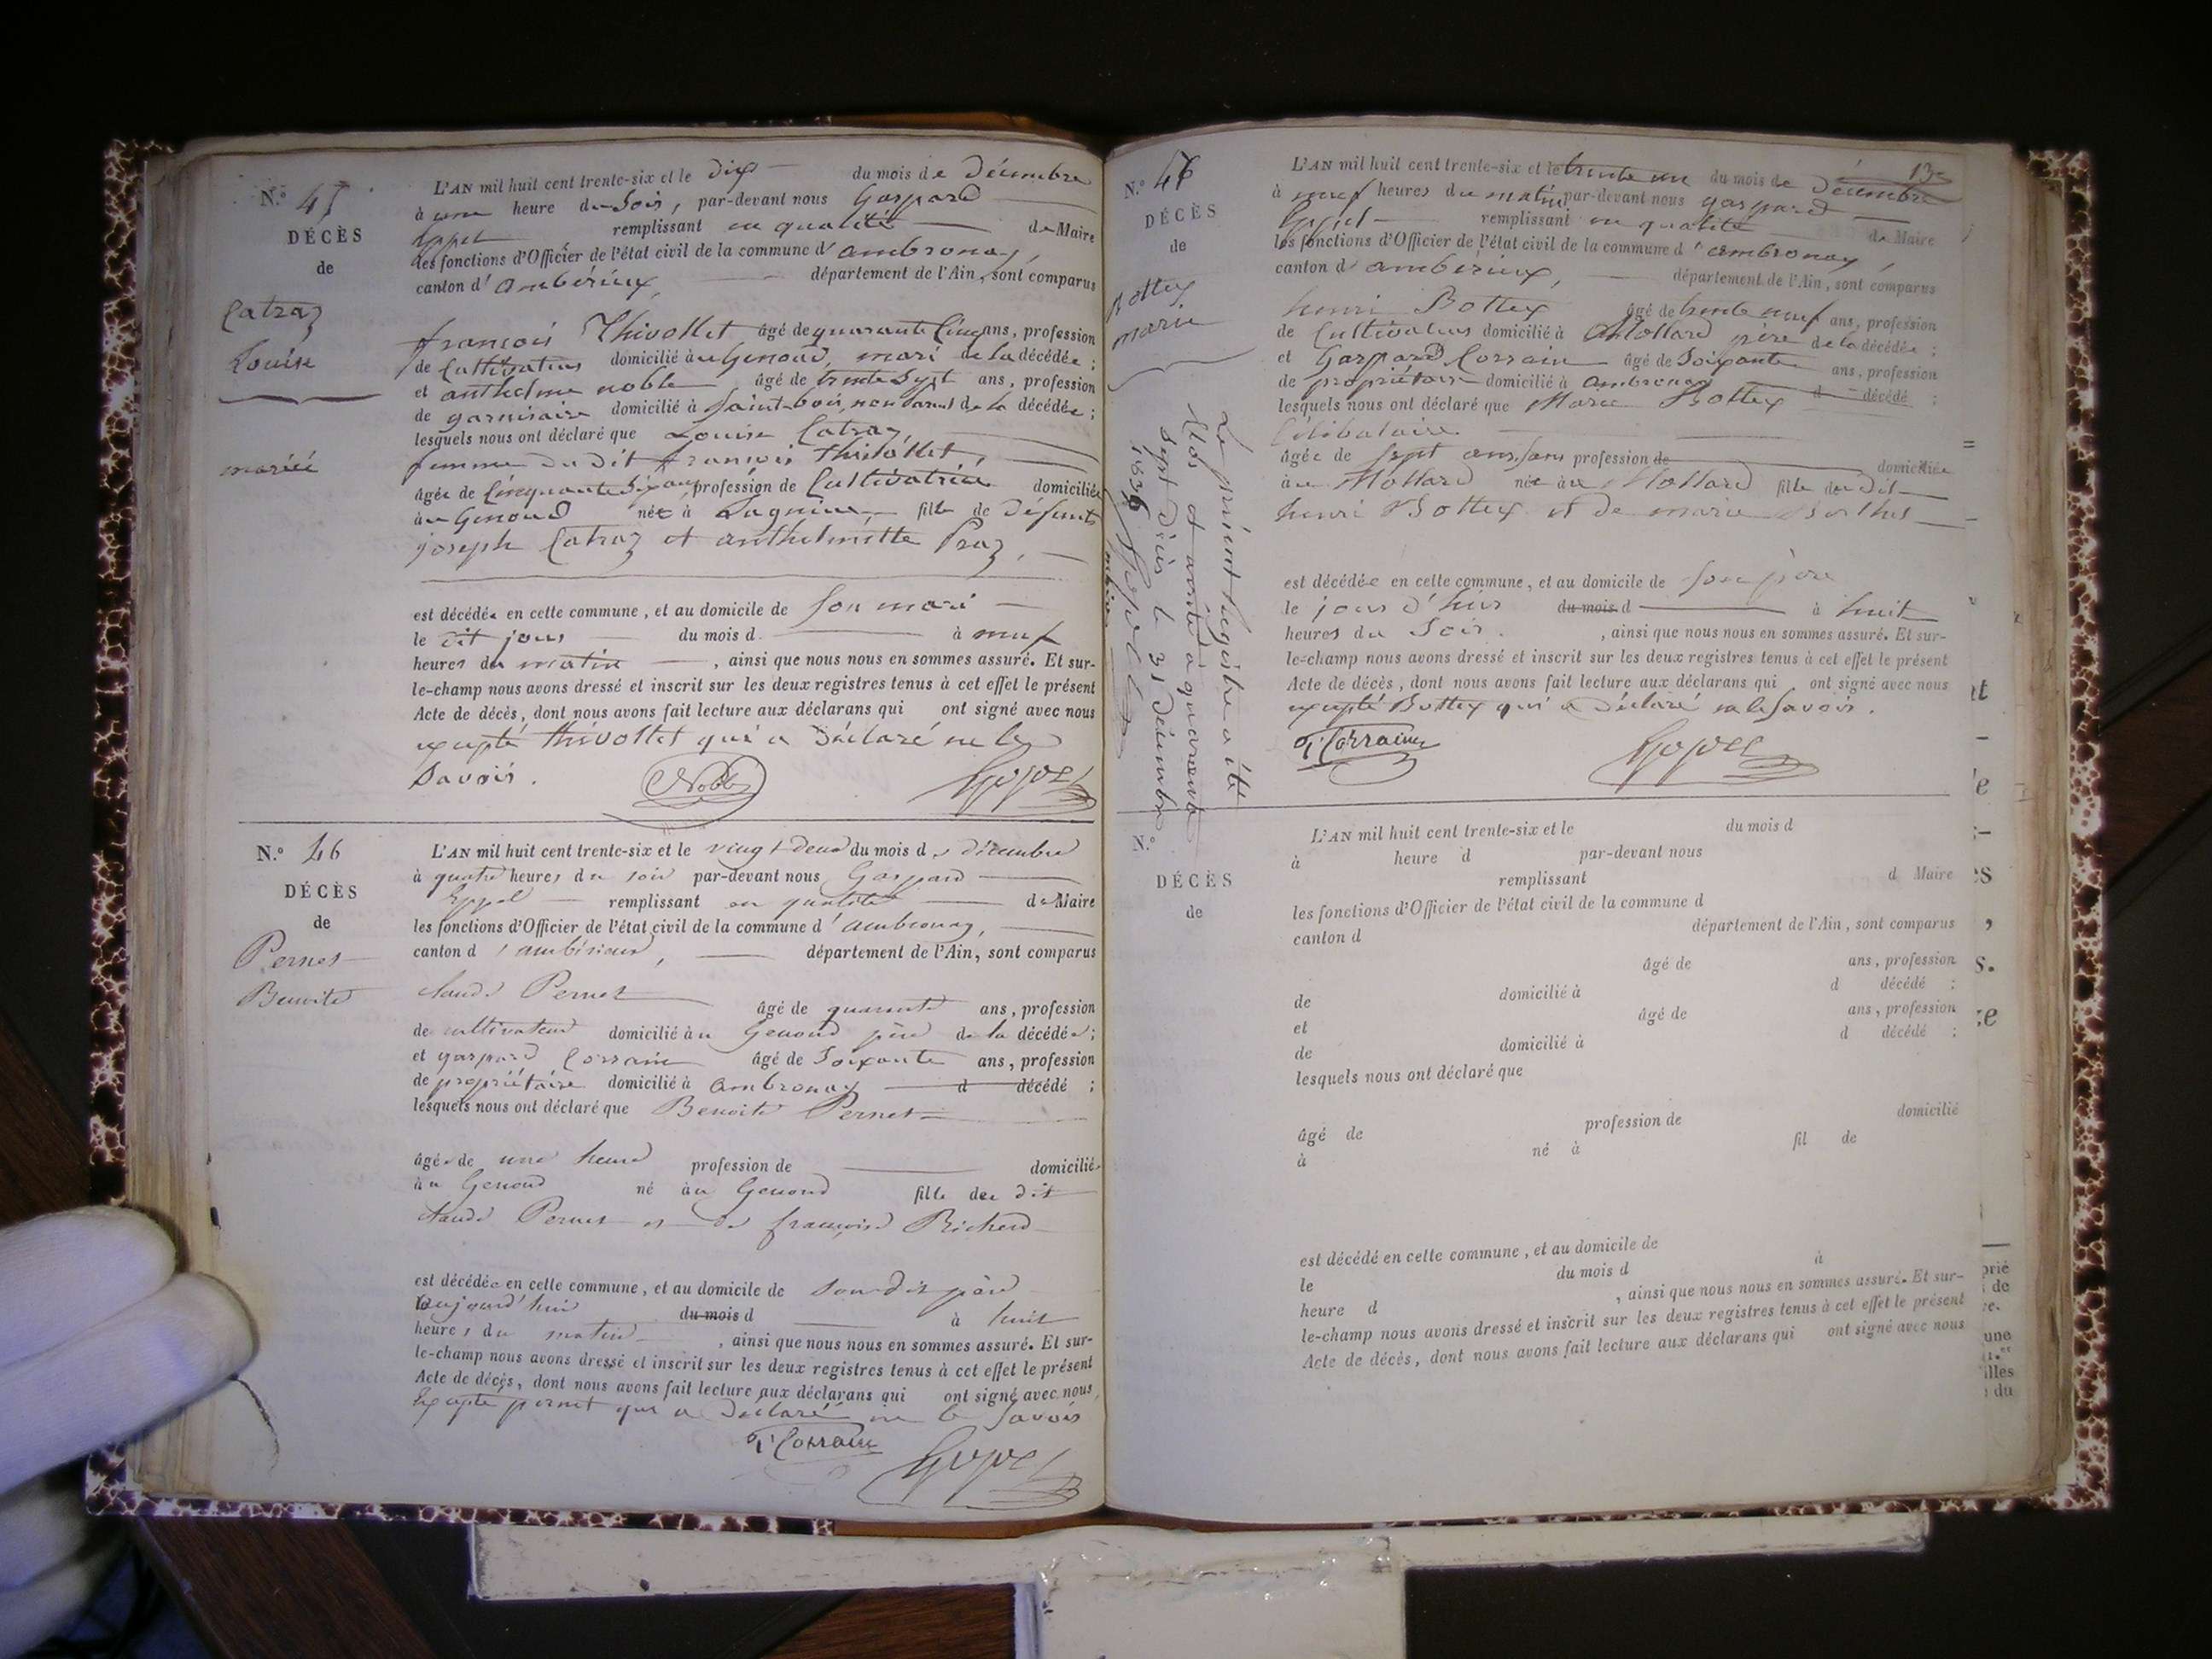 N.° 45
DÉCÈS
de
Catraz
Louise
mariée
L'AN mil huit cent trente-six et le dix du mois de décembre
à une heure du soir, par-devant nous Gaspard
remplissant en qualité de Maire
les fonctions d'Officier de l'état civil de la commune d'ambronay,
canton d'ambérieux, département de l'Ain, sont comparus
françois Thivollet âgé de quarante cinq ans, profession
de Cultivateur domicilié au Genoud, mari de la décédée ;
et anthelme noble âgé de trente sept ans, profession
de garnisaire domicilié à Saint-bois, non parent de la décédée ;
lesquels nous ont déclaré que Louise Catraz,
femme du dit françois thivollet,
âgée de Cinquante six ans profession de Cultivatrice domiciliée
au Genoud née à Lagnieu, fille de défunts
joseph Catraz et anthelmette Praz,
est décédée en cette commune, et au domicile de son mari
le dit jour du mois d à neuf
heures du matin, ainsi que nous nous en sommes assuré. Et sur-
le-champ nous avons dressé et inscrit sur les deux registres tenus à cet effet le présent
Acte de décès, dont nous avons fait lecture aux déclarans qui ont signé avec nous
excepté thivollet qui a déclaré ne le
Savoir.
Noble
N.° 46
DÉCÈS
de
Pernet
Benoite
L'AN mil huit cent trente-six et le vingt deux du mois de décembre
à quatre heures du soir par-devant nous Gaspard
remplissant en qualité de Maire
les fonctions d'Officier de l'état civil de la commune d'ambronay,
canton d'ambérieux, département de l'Ain, sont comparus
claude Pernet âgé de quarante ans, profession
de cultivateur domicilié au Genoud père de la décédée ;
et gaspard Corrain âgé de Soixante ans, profession
de propriétaire domicilié à ambronay d décédé ;
lesquels nous ont déclaré que Benoite Pernet
âgée de une heure profession de domiciliée
au Genoud né au Genoud fille du dit
claude Pernet et de françoise Richerd
est décédée en cette commune, et au domicile de son dit père
aujourd'hui du mois d à huit
heures du matin, ainsi que nous nous en sommes assuré. Et sur-
le-champ nous avons dressé et inscrit sur les deux registres tenus à cet effet le présent
Acte de décès, dont nous avons fait lecture aux déclarans qui ont signé avec nous,
Excepté pernet qui a déclaré ne le Savoir
Corrain
13
N.° 47
DÉCÈS
de
Bottex
marie
L'AN mil huit cent trente-six et le trente un du mois de décembre
à neuf heures du matin par-devant nous gaspard
remplissant en qualité de Maire
les fonctions d'Officier de l'état civil de la commune d'ambronay,
canton d'ambérieux, département de l'Ain, sont comparus
henri Bottex âgé de trente neuf ans, profession
de Cultivateur domicilié à Mollard père de la décédée ;
et Gaspard Corrain âgé de Soixante ans, profession
de propriétaire domicilié à ambronay d décédé ;
lesquels nous ont déclaré que Marie Bottex
Célibataire
âgée de sept ans, sans profession de domiciliée
au Mollard née au Mollard fille du dit
henri Bottex et de marie Berthet
est décédée en cette commune, et au domicile de son père
le jour d'hier du mois d à huit
heures du Soir, ainsi que nous nous en sommes assuré. Et sur-
le-champ nous avons dressé et inscrit sur les deux registres tenus à cet effet le présent
Acte de décès, dont nous avons fait lecture aux déclarans qui ont signé avec nous
excepté Bottex qui a déclaré ne le savoir.
Corrain
Le présent registre a été
Clos et arrêté à quarante
Sept décès le 31 décembre
1836
N.°
DÉCÈS
de
L'AN mil huit cent trente-six et le du mois d
à heure d par-devant nous
remplissant d Maire
les fonctions d'Officier de l'état civil de la commune d
canton d département de l'Ain, sont comparus
âgé de ans, profession
de domicilié à d décédé ;
et âgé de ans, profession
de domicilié à d décédé ;
lesquels nous ont déclaré que
âgé de profession de domicilié
à né à fil de
est décédé en cette commune, et au domicile de
le du mois d à
heure d , ainsi que nous nous en sommes assuré. Et sur-
le-champ nous avons dressé et inscrit sur les deux registres tenus à cet effet le présent
Acte de décès, dont nous avons fait lecture aux déclarans qui ont signé avec nous